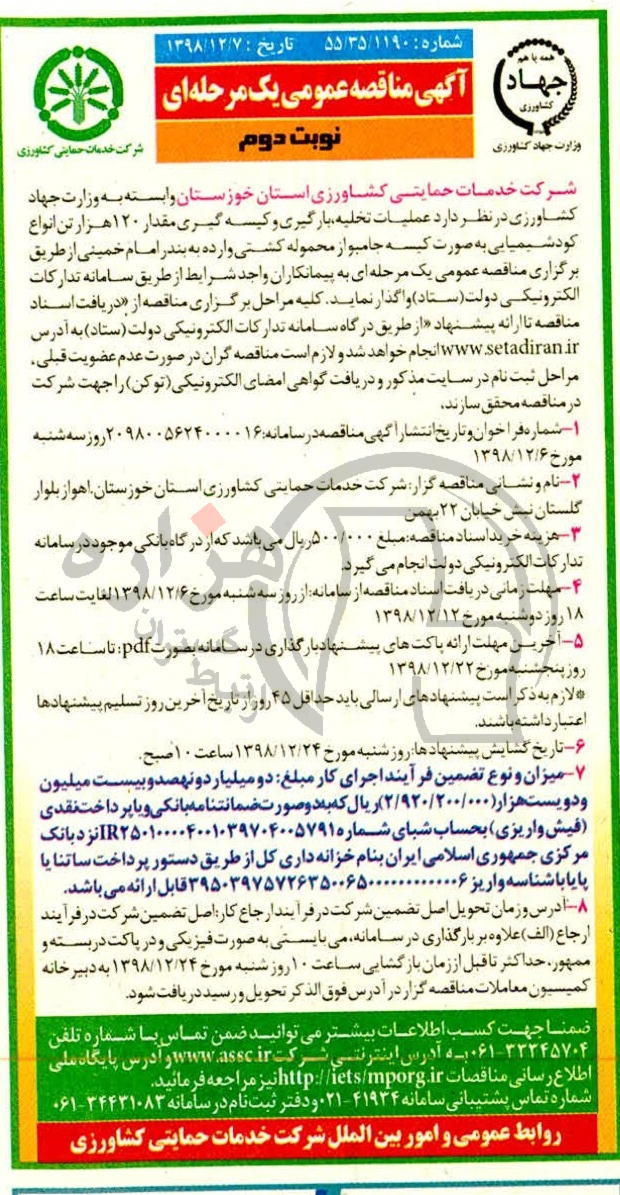 شماره: ۵۵/۳۵/۱۱۹۰ تاریخ: ۱۳۹۸/۱۲/۷
همه با هم
جهاد
کشاورزی
وزارت جهاد کشاورزی
آگهی مناقصه عمومی یک مرحله‌ای
نوبت دوم
شرکت خدمات حمایتی کشاورزی
شرکت خدمات حمایتی کشاورزی استان خوزستان وابسته به وزارت جهاد
کشاورزی در نظر دارد عملیات تخلیه، بارگیری و کیسه گیری مقدار ۱۲۰ هزار تن انواع
کود شیمیایی به صورت کیسه جامبو از محموله کشتی وارده به بندر امام خمینی از طریق
برگزاری مناقصه عمومی یک مرحله‌ای به پیمانکاران واجد شرایط از طریق سامانه تدارکات
الکترونیکی دولت (ستاد) واگذار نماید. کلیه مراحل برگزاری مناقصه از «دریافت اسناد
مناقصه تا ارائه پیشنهاد «از طریق درگاه سامانه تدارکات الکترونیکی دولت (ستاد) به آدرس
www.setadiran.ir انجام خواهد شد و لازم است مناقصه گران در صورت عدم عضویت قبلی،
مراحل ثبت نام در سایت مذکور و دریافت گواهی امضای الکترونیکی (توکن) را جهت شرکت
در مناقصه محقق سازند.
۱–شماره فراخوان و تاریخ انتشار آگهی مناقصه در سامانه: ۲۰۹۸۰۰۵۶۲۴۰۰۰۰۱۶ روز سه شنبه
مورخ ۱۳۹۸/۱۲/۶
۲–نام و نشانی مناقصه گزار: شرکت خدمات حمایتی کشاورزی استان خوزستان. اهواز بلوار
گلستان نبش خیابان ۲۲ بهمن
۳–هزینه خرید اسناد مناقصه: مبلغ ۵۰۰/۰۰۰ ریال می باشد که از درگاه بانکی موجود در سامانه
تدارکات الکترونیکی دولت انجام می گیرد.
۴–مهلت زمانی دریافت اسناد مناقصه از سامانه: از روز سه شنبه مورخ ۱۳۹۸/۱۲/۶ لغایت ساعت
۱۸ روز دوشنبه مورخ ۱۳۹۸/۱۲/۱۲
۵–آخرین مهلت ارائه پاکت های پیشنهاد بارگذاری در سامانه بصورت pdf: تا ساعت ۱۸
روز پنجشنبه مورخ ۱۳۹۸/۱۲/۲۲
*لازم به ذکر است پیشنهادهای ارسالی باید حداقل ۴۵ روز از تاریخ آخرین روز تسلیم پیشنهادها
اعتبار داشته باشند.
۶–تاریخ گشایش پیشنهادها: روز شنبه مورخ ۱۳۹۸/۱۲/۲۴ ساعت ۱۰ صبح.
۷–میزان و نوع تضمین فرآیند اجرای کار مبلغ: دو میلیارد و نهصد و بیست میلیون
و دویست هزار (۲/۹۲۰/۲۰۰/۰۰۰) ریال که به دو صورت ضمانتنامه بانکی و یا پرداخت نقدی
(فیش واریزی) بحساب شبای شماره IR۲۵۰۱۰۰۰۰۴۰۰۱۰۳۹۷۰۴۰۰۵۷۹۱ نزد بانک
مرکزی جمهوری اسلامی ایران بنام خزانه داری کل از طریق دستور پرداخت ساتنا یا
پایا با شناسه واریز قابل ارائه می باشد.
۸–آدرس و زمان تحویل اصل تضمین شرکت در فرآیند ارجاع کار: اصل تضمین شرکت در فرآیند
ارجاع (الف) علاوه بر بارگذاری در سامانه، می بایستی به صورت فیزیکی و در پاکت در بسته و
ممهور، حداکثر تا قبل از زمان بازگشایی ساعت ۱۰ روز شنبه مورخ ۱۳۹۸/۱۲/۲۴ به دبیرخانه
کمیسیون معاملات مناقصه گزار در آدرس فوق الذکر تحویل و رسید دریافت شود.
ضمنا جهت کسب اطلاعات بیشتر می توانید ضمن تماس با شماره تلفن
۰۶۱-۳۳۳۴۵۷۰۴ به آدرس اینترنتی شرکت www.assc.ir و آدرس پایگاه ملی
اطلاع رسانی مناقصات http://iets/mporg.ir نیز مراجعه فرمائید.
شماره تماس پشتیبانی سامانه ۴۱۹۳۴-۰۲۱ و دفتر ثبت نام در سامانه ۳۴۴۳۱۰۸۳-۰۶۱
روابط عمومی و امور بین الملل شرکت خدمات حمایتی کشاورزی
هزاره
ارتباط